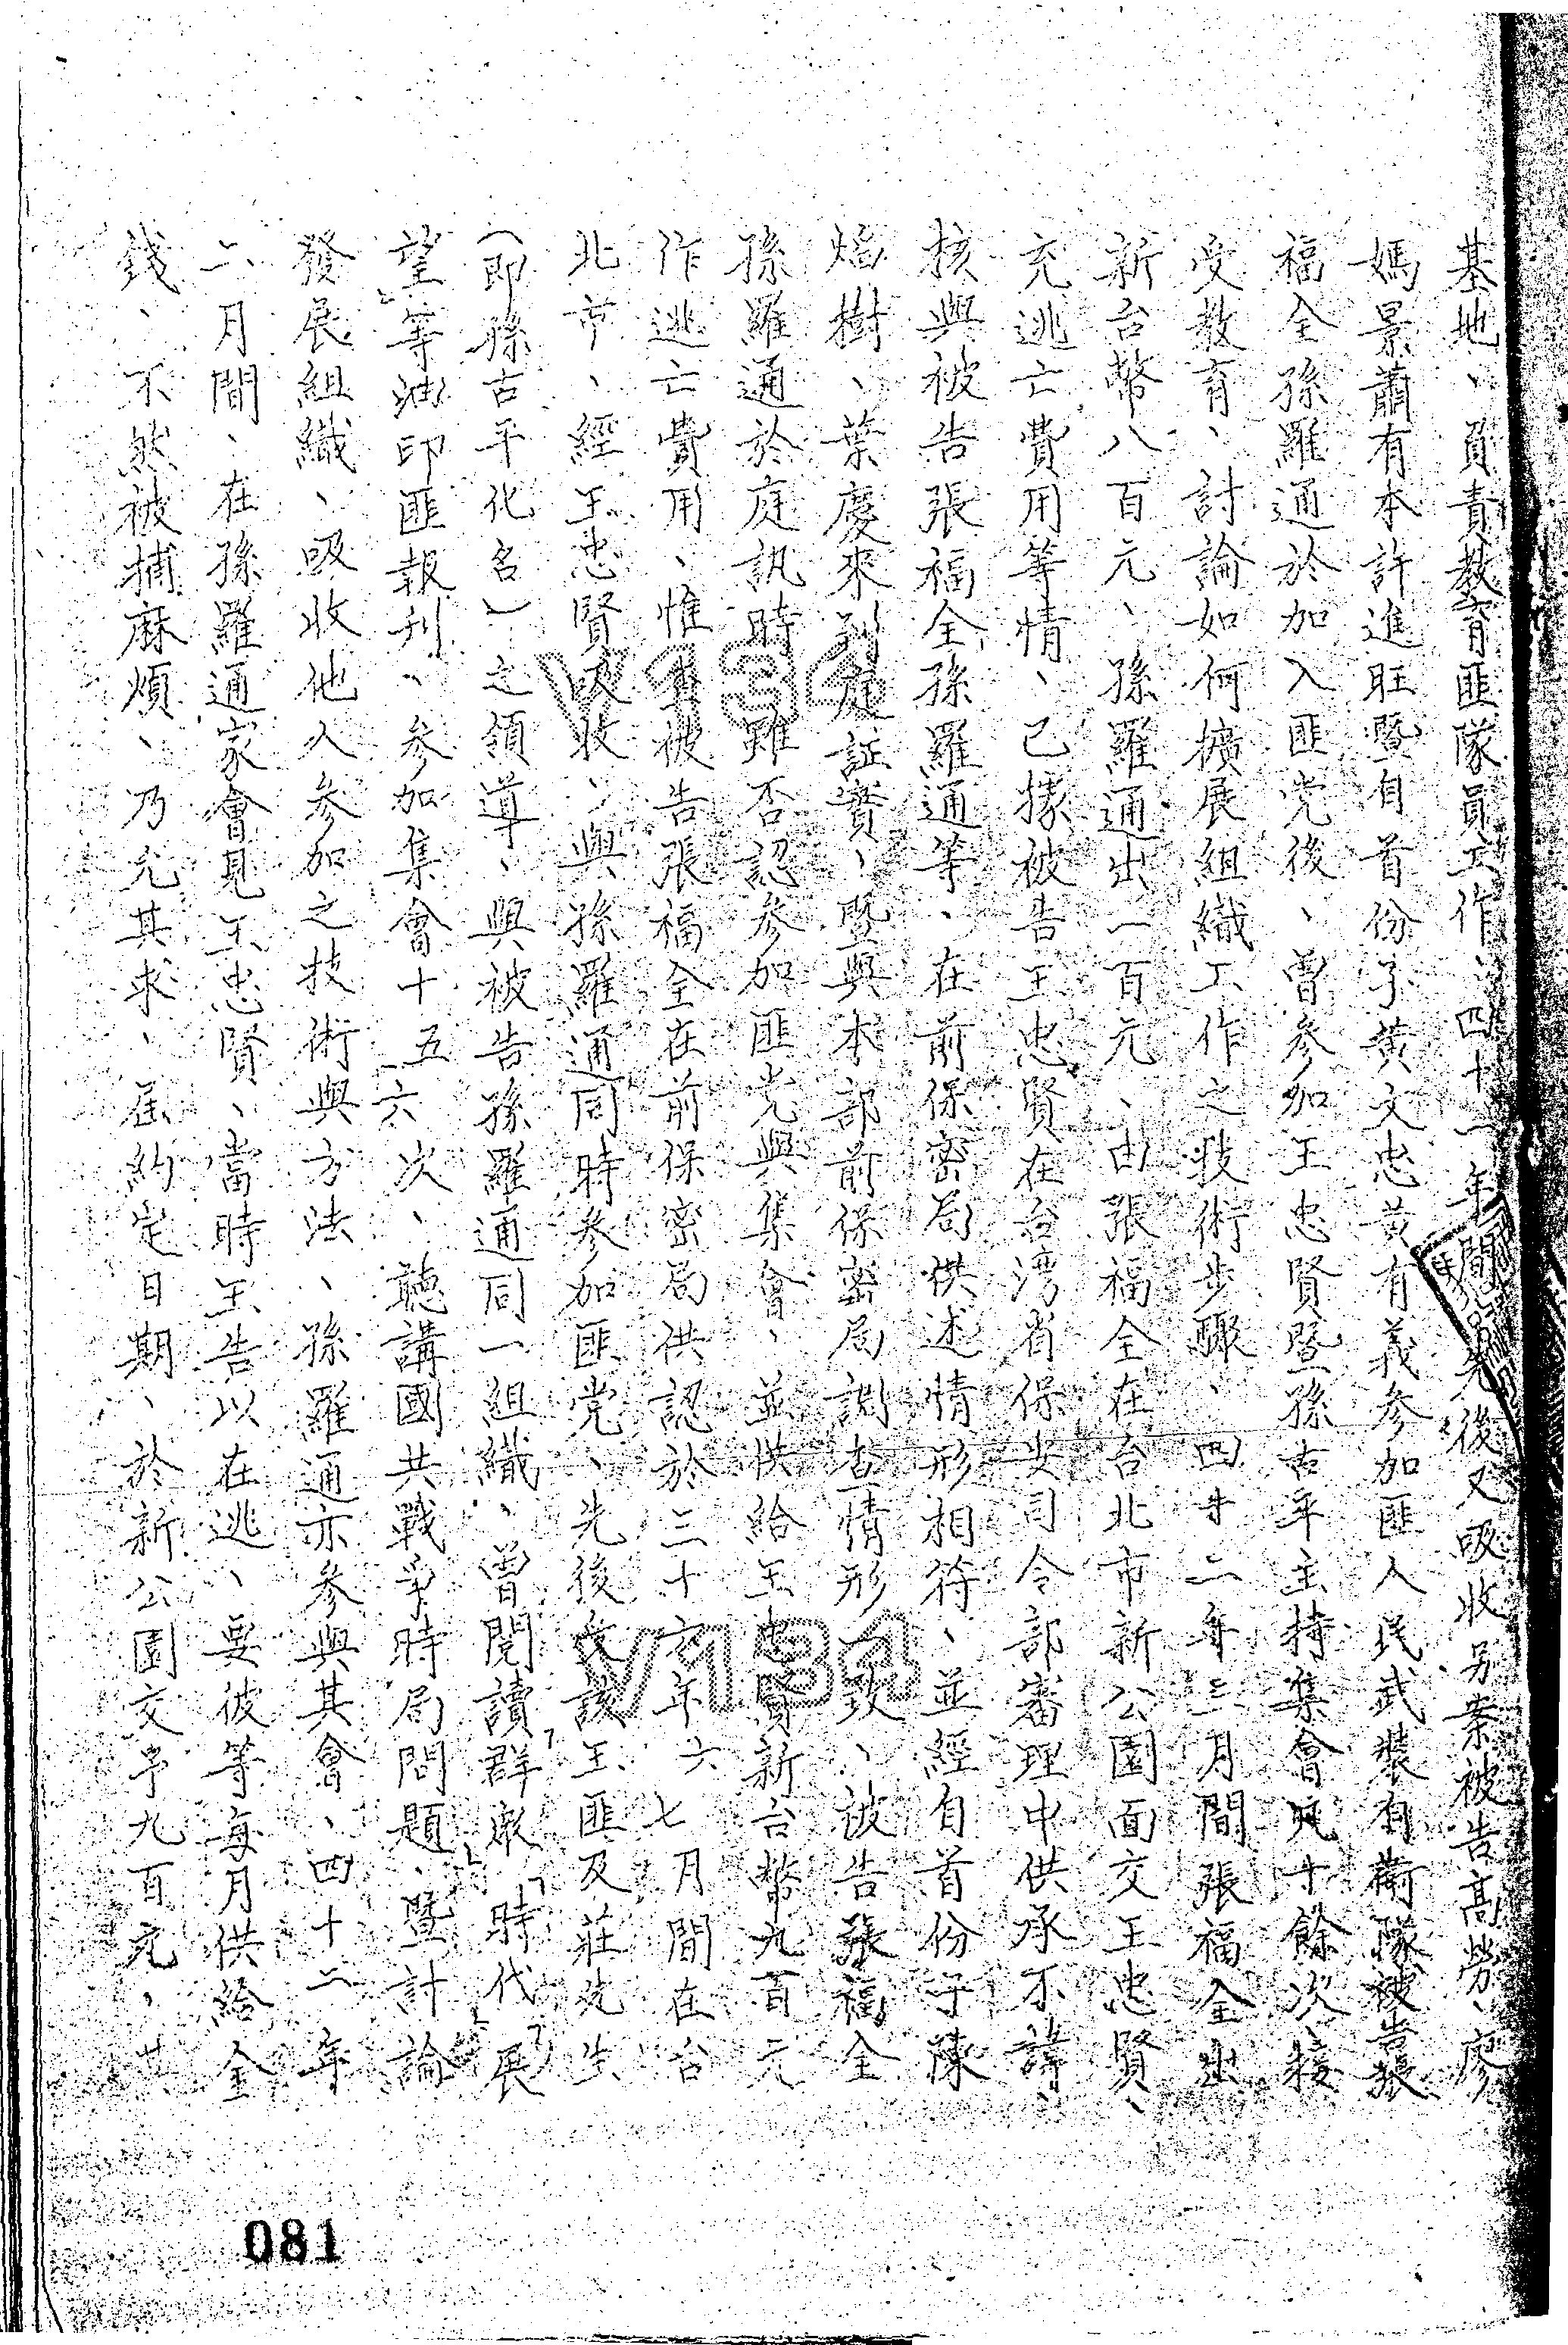 基地、負責教育匪隊員工作、四十一年間先後又吸收另案被告高勞、廖
媽景蕭有本許進旺暨自首份子黃文忠黃有義參加匪人民武裝自衛隊被告張
福全孫羅通於加入匪党後、曾參加王忠賢暨孫古平主持集會凡十餘次接
受教育、討論如何擴展組織工作之技術步驟、四十二年三月間張福全出
新台幣八百元、孫羅通出一百元、由張福全在台北市新公園面交王忠賢、
充逃亡費用等情、已據被告王忠賢在台湾省保安司令部審理中供承不諱、
核與被告張福全孫羅通等、在前保密局供述情形相符、並經自首份子陳
焰樹、葉慶來到庭証實、暨與本部前保密局調查情形一致、被告張福全
孫羅通於庭訊時雖否認參加匪党與集會、並供給王忠賢新台幣九百元
作逃亡費用、惟查被告張福全在前保密局供認於三十六年六七月間在台
北市、經王忠賢吸收、與孫羅通同時參加匪党、先後受該王匪及莊先生
(即孫古平化名)之領導、與被告孫羅通同一組織、曾閱讀「群眾」「時代」「展
望」等油印匪報刊、參加集會十五六次、聽講國共戰爭時局問題、暨討論
發展組織、吸收他人參加之技術與方法、孫羅通亦參與其會、四十二年
二月間、在孫羅通家會見王忠賢、當時王告以在逃、要彼等每月供給金
錢、不然被捕麻煩、乃允其求、屆約定日期、於新公園交予九百元、其
081
V134
V134